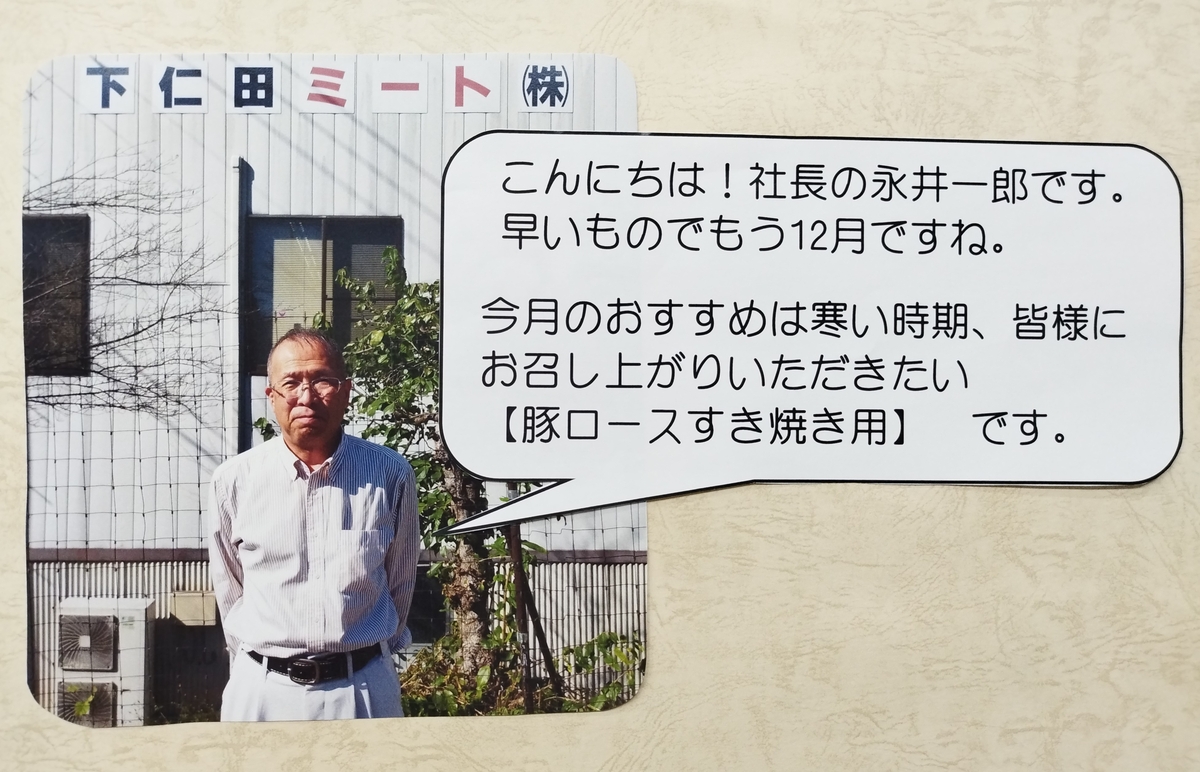 下仁田ミート㈱
こんにちは！社長の永井一郎です。
早いものでもう12月ですね。
今月のおすすめは寒い時期、皆様に
お召し上がりいただきたい
【豚ロースすき焼き用】　です。